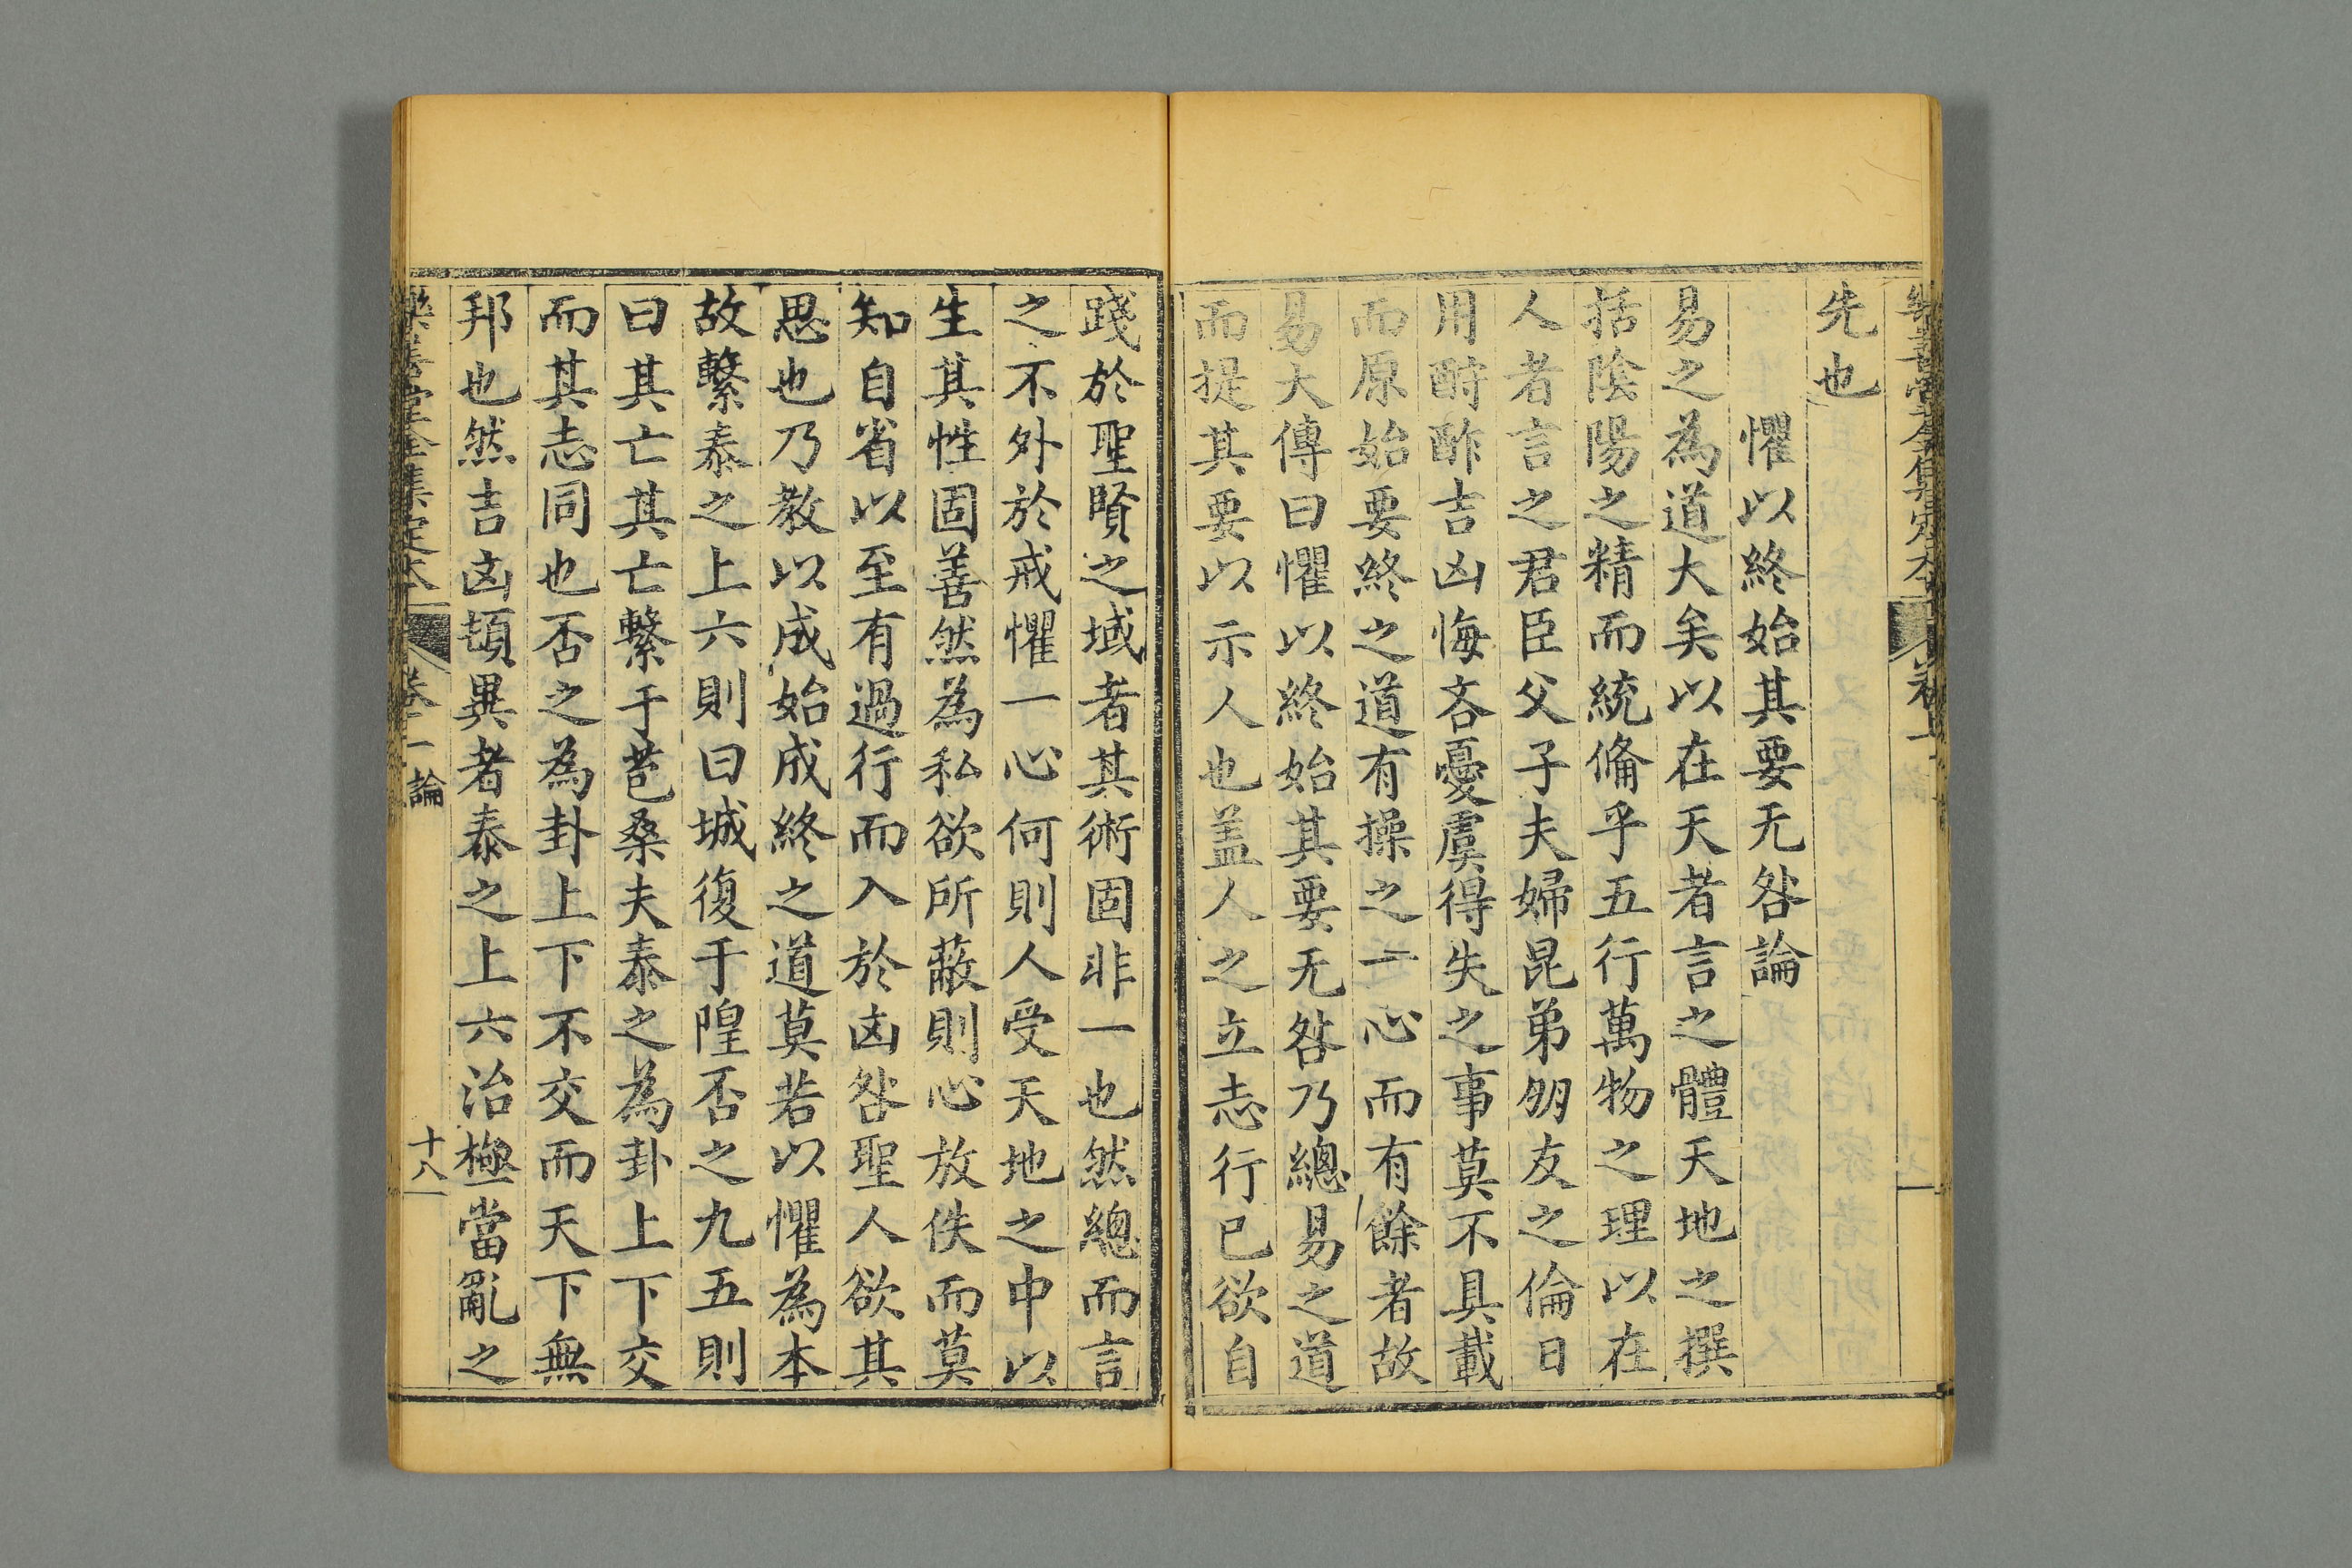 先也
懼以終始其要无咎論
易之為道大矣以在天者言之體天地之撰
括陰陽之精而統備乎五行萬物之理以在
人者言之君臣父子夫婦昆弟朋友之倫日
用酧酢吉凶悔吝憂虞得失之事莫不具載
而原始要終之道有操之一心而有餘者故
易大傳曰懼以終始其要无咎乃總易之道
而提其要以示人也蓋人之立志行已欲自
踐於聖賢之域者其術固非一也然總而言
之不外於戒懼一心何則人受天地之中以
生其性固善然為私欲所蔽則心放佚而莫
知自省以至有過行而入於凶咎聖人欲其
思也乃教以成始成終之道莫若以懼為本
故繫泰之上六則曰城復于隍否之九五則
曰其亡其亡繫于苞桑夫泰之為卦上下交
而其志同也否之為卦上下不交而天下無
邦也然吉凶頓異者泰之上六治極當亂之
樂善堂全集定本 卷二 論 十八